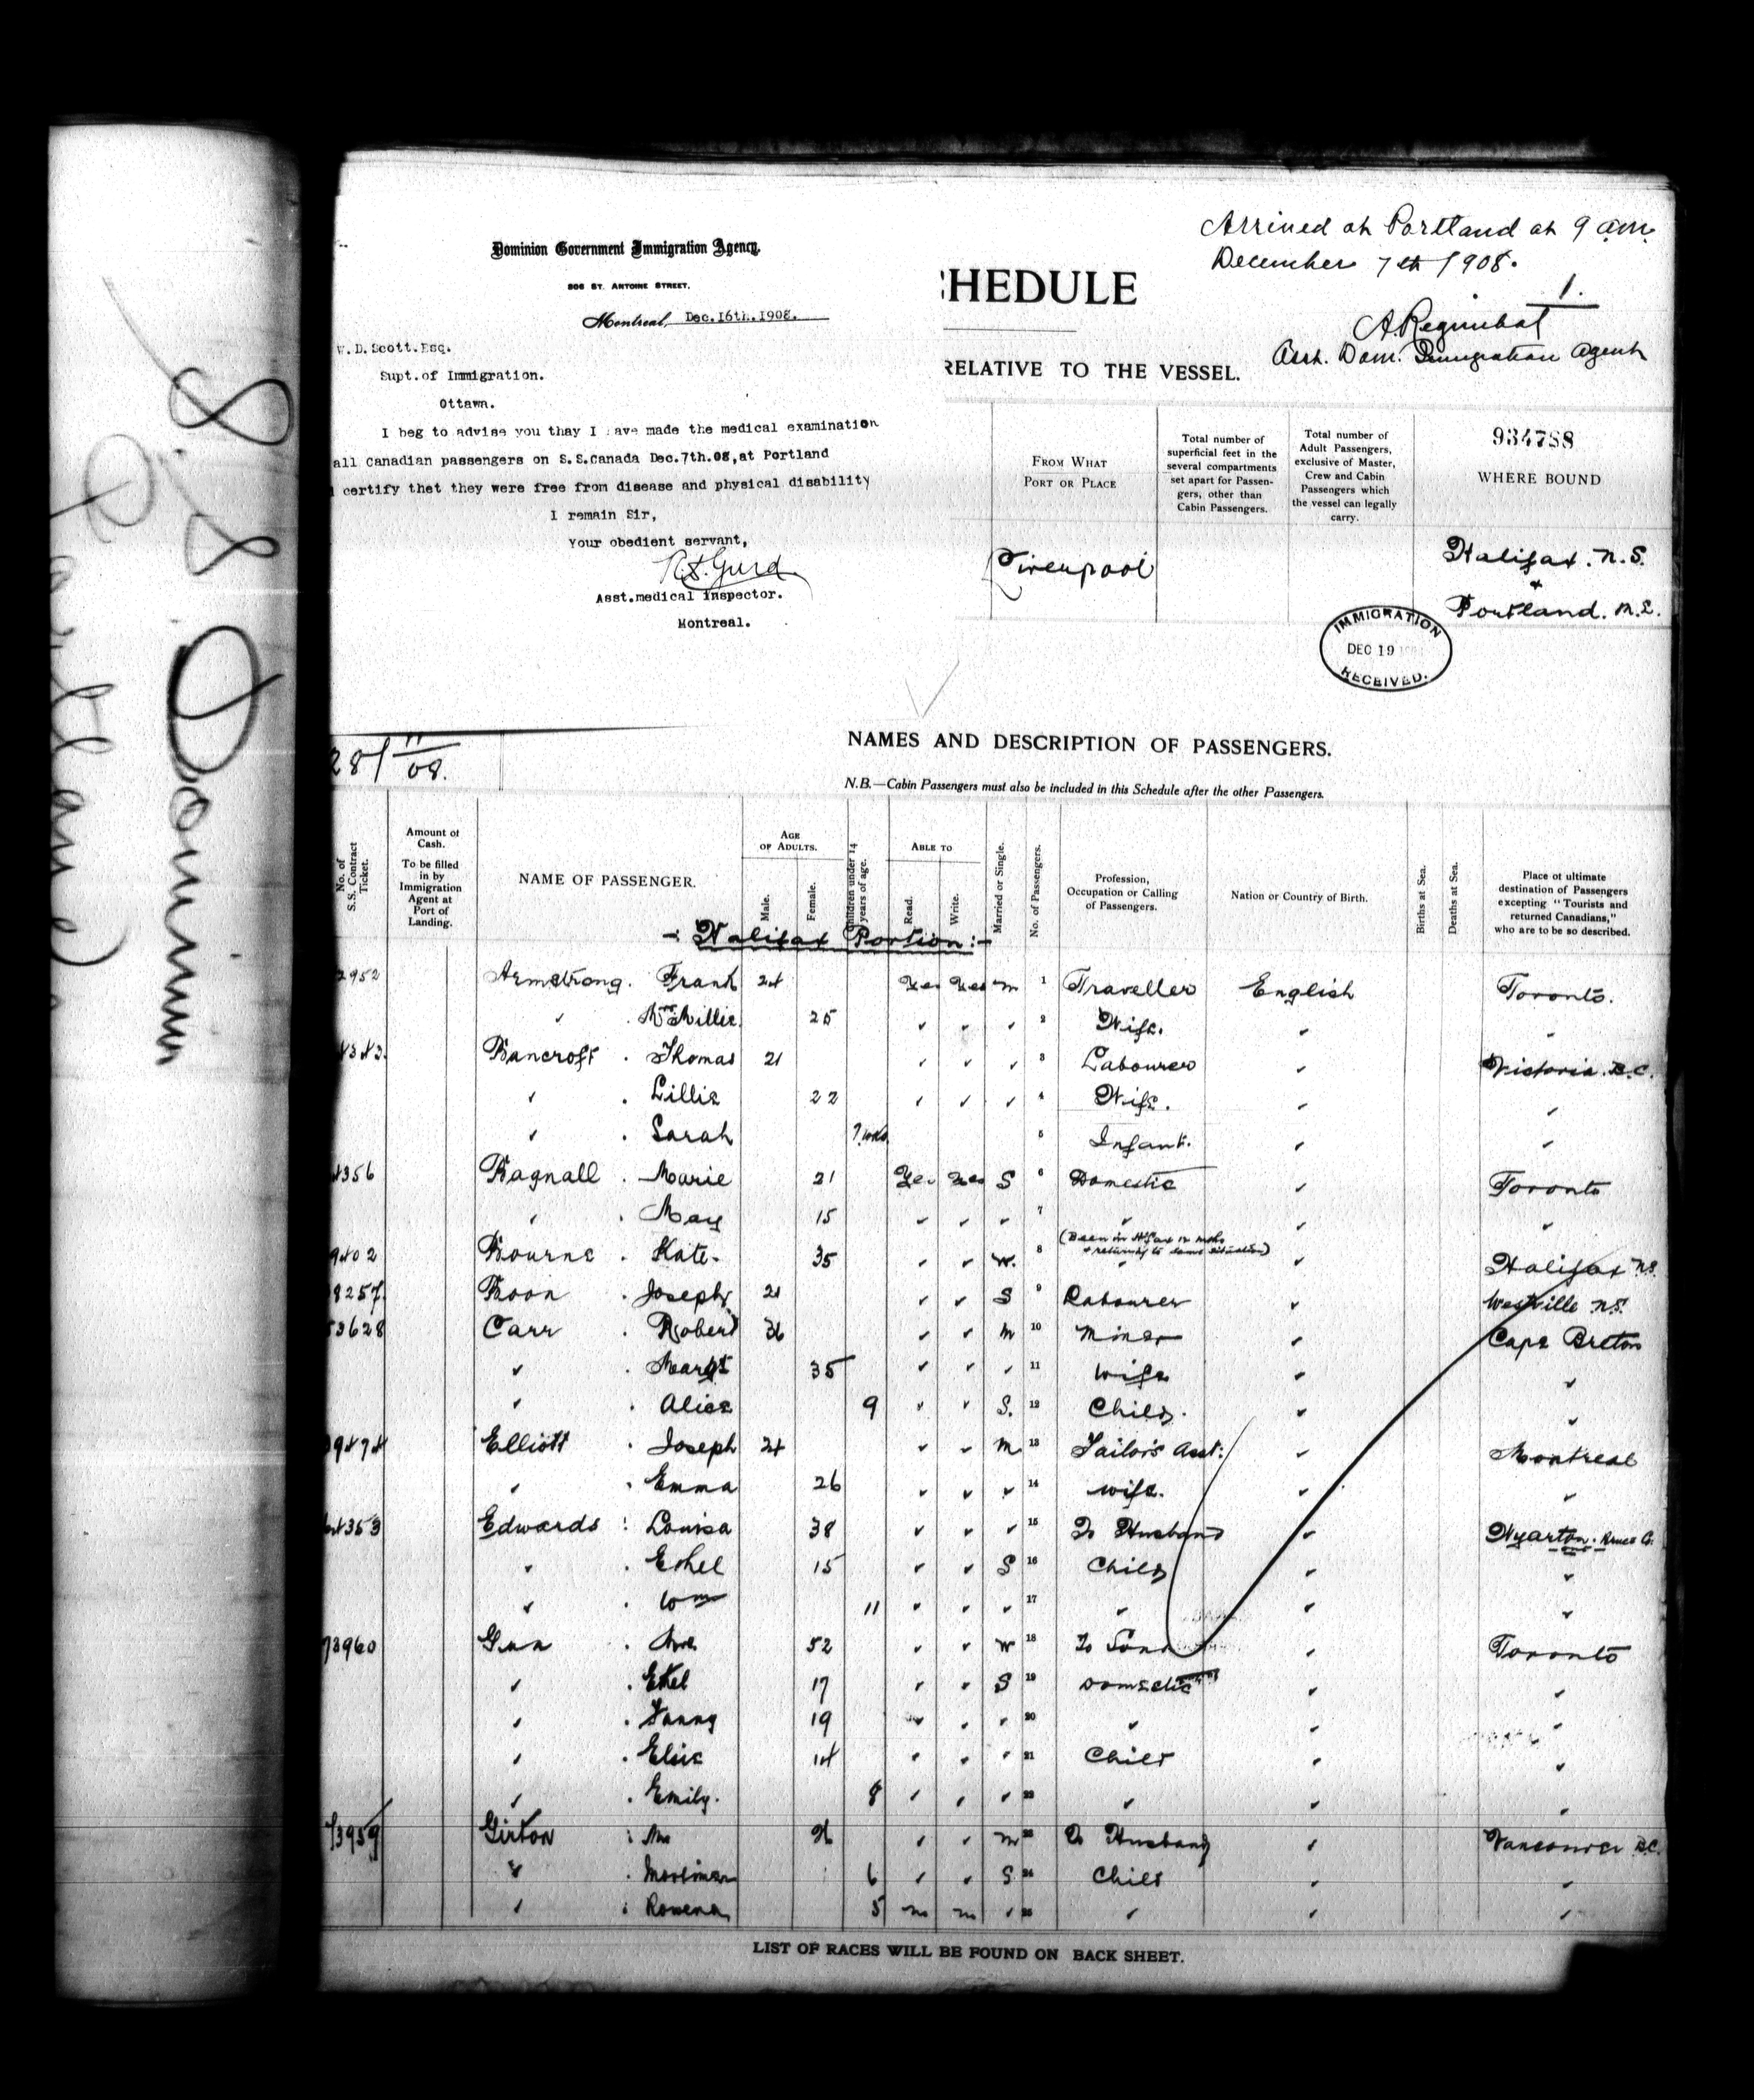 S.S. Dominion
(Portland)
Dominion Government Immigration Agency.
506 ST. ANTOINE STREET.
Montreal, Dec.16th.1908.
W.D.Scott.Esq.
Supt.of Immigration.
Ottawa.
I beg to advise you thay I ave made the medical examination
all Canadian passengers on S.S.Canada Dec.7th.08,at Portland
certify thet they were free from disease and physical disability
I remain Sir,
Your obedient servant,
Asst.medical Inspector.
Montreal.
Arrived at Portland at 9 a.m.
December 7th 1908.
1.
HEDULE
Asst. Dom. Immigration Agent
RELATIVE TO THE VESSEL.
FROM WHAT PORT OR PLACE
Total number of superficial feet in the several compartments set apart for Passengers, other than Cabin Passengers.
Total number of Adult Passengers, exclusive of Master, Crew and Cabin Passengers which the vessel can legally carry.
934788
WHERE BOUND
Liverpool
Halifax. N.S.
&
Portland. M.E.
IMMIGRATION
DEC 19
RECEIVED.
28/11/08.
NAMES AND DESCRIPTION OF PASSENGERS.
N.B.—Cabin Passengers must also be included in this Schedule after the other Passengers.
No. of S.S. Contract Ticket.
Amount of Cash. To be filled in by Immigration Agent at Port of Landing.
NAME OF PASSENGER.
AGE OF ADULTS.
Male.
Female.
Children under 14 years of age.
ABLE TO
Read.
Write.
Married or Single.
No. of Passengers.
Profession, Occupation or Calling of Passengers.
Nation or Country of Birth.
Births at Sea.
Deaths at Sea.
Place of ultimate destination of Passengers excepting "Tourists and returned Canadians," who are to be so described.
-: Halifax Portion :-
2952 Armstrong. Frank 24 Yes Yes m 1 Traveller English Toronto.
✓ . Mrs Millie 25 ✓ ✓ ✓ 2 Wife. ✓ ✓
4343. Bancroft . Thomas 21 ✓ ✓ ✓ 3 Labourer ✓ Victoria. B.C.
✓ . Lillie 22 ✓ ✓ ✓ 4 Wife. ✓ ✓
✓ . Sarah 5 Infant. ✓ ✓
4356 Bagnall . Marie 21 Yes Yes S 6 Domestic ✓ Toronto
✓ . May 15 ✓ ✓ ✓ 7 ✓ ✓ ✓
(Been in H'fax 12 mths
& returning to same situation)
9402 Bourne . Kate. 35 ✓ ✓ w. 8 ✓ ✓ Halifax N.S.
8257. Boon . Joseph 21 ✓ ✓ S 9 Labourer ✓ Westville N.S.
53628 Carr . Robert 36 ✓ ✓ m 10 Miner ✓ Cape Breton
✓ . Margt 35 ✓ ✓ ✓ 11 wife ✓ ✓
✓ . Alice 9 ✓ ✓ S. 12 Child. ✓ ✓
9474 Elliott . Joseph 24 ✓ ✓ m 13 Tailor's Asst: ✓ Montreal
✓ . Emma 26 ✓ ✓ ✓ 14 wife. ✓ ✓
4353 Edwards : Louisa 38 ✓ ✓ ✓ 15 To Husband ✓ Wyarton. Bruce Co. Ont
✓ . Ethel 15 ✓ ✓ S 16 Child ✓ ✓
✓ . Wm 11 ✓ ✓ ✓ 17 ✓ ✓ ✓
73960 Gun . Mrs 52 ✓ ✓ w 18 To Sons ✓ Toronto
✓ . Ethel 17 ✓ ✓ S 19 Domestic ✓ ✓
✓ . Fanny 19 ✓ ✓ ✓ 20 ✓ ✓ ✓
✓ . Elsie 14 ✓ ✓ ✓ 21 Child ✓ ✓
✓ . Emily. 8 ✓ ✓ ✓ 22 ✓ ✓ ✓
73959 Girton : Mrs 26 ✓ ✓ m 23 To Husband ✓ Vancouver B.C.
✓ . Mortimer 6 ✓ ✓ S 24 Child ✓ ✓
✓ : Rowena 5 no no ✓ 25 ✓ ✓ ✓
LIST OF RACES WILL BE FOUND ON BACK SHEET.